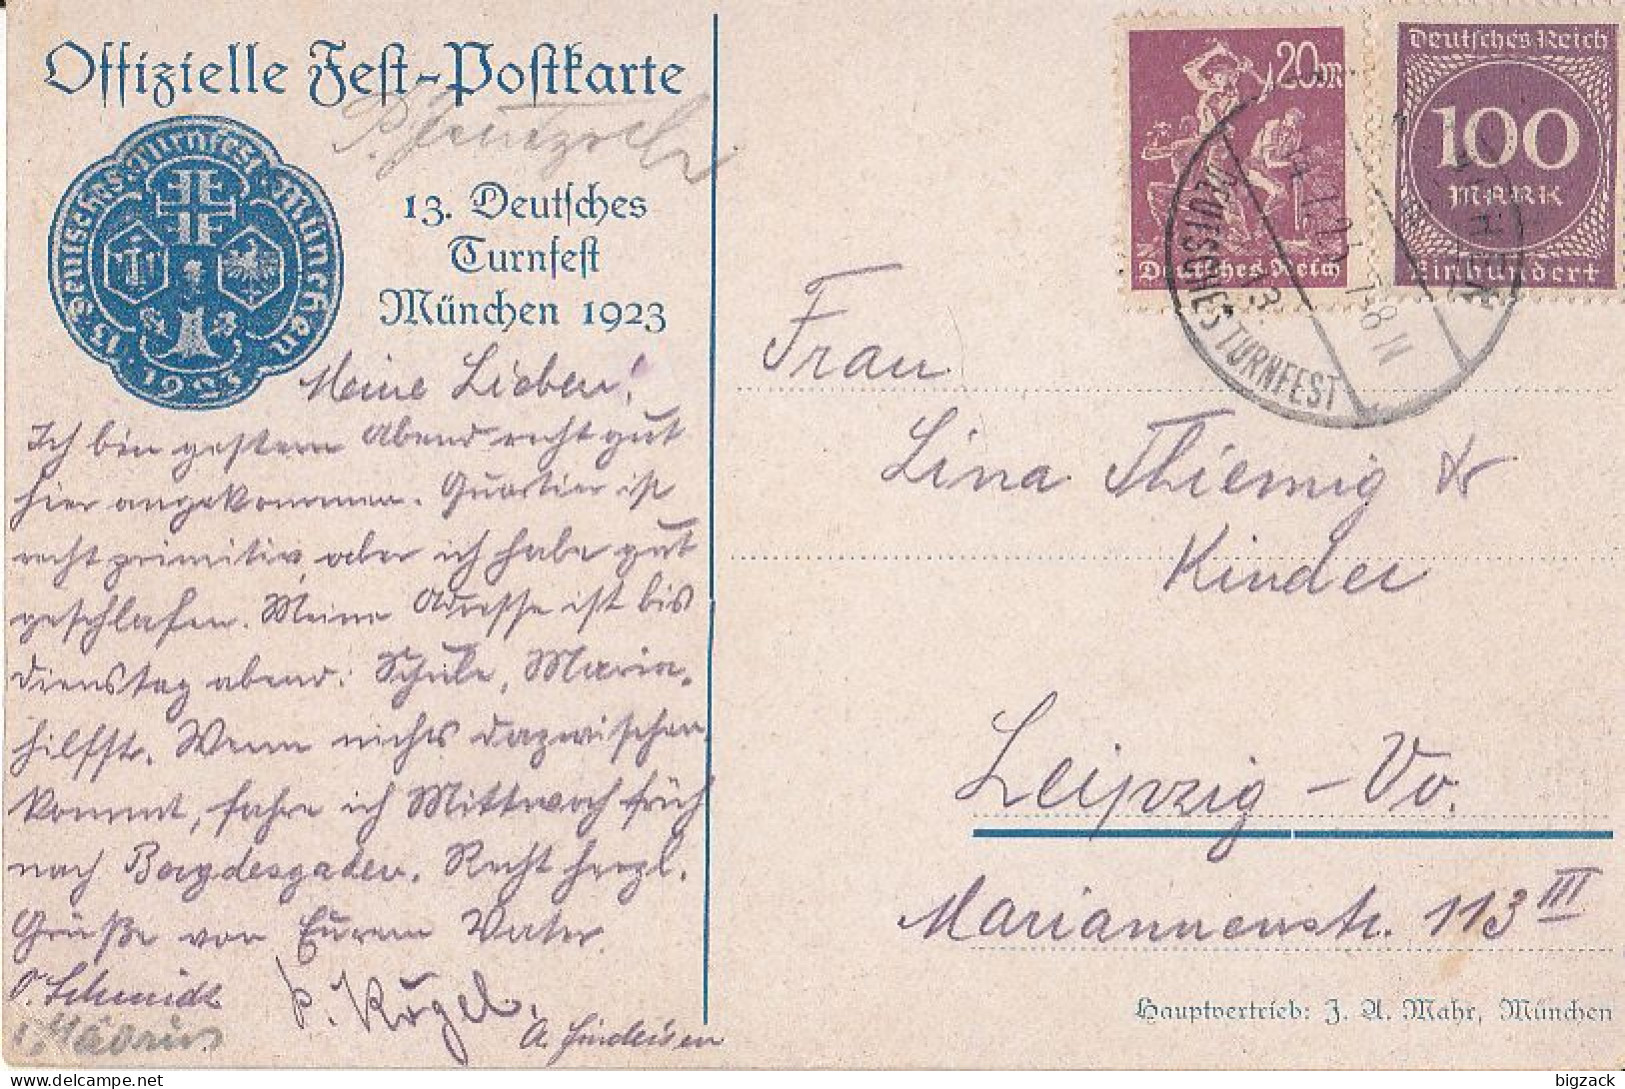 Offizielle Fest-Postkarte
13. Deutsches
Turnfest
München 1923
13. Deutsches Turnfest München
1923
Meine Lieben!
Ich bin gestern Abend recht gut
hier angekommen. Quartier ist
recht primitiv, aber ich habe gut
geschlafen. Meine Adresse ist bis
Dienstag abend: Schule, Maria-
hilfstr. Wenn nichts dazwischen
kommt, fahre ich Mittwoch früh
nach Bergdesgaden. Recht herzl.
Grüße von Eurem Vater.
O. Schmidt
P. Kögel.
A. Findeisen
20 M
Deutsches Reich
Deutsches Reich
100
MARK
Einhundert
MÜNCHEN
7-8 N
DEUTSCHES TURNFEST
Frau
Lina Thiemig &
Kinder
Leipzig - Vo.
Mariannenstr. 113 III
Hauptvertrieb: J. A. Mahr, München
bigzack